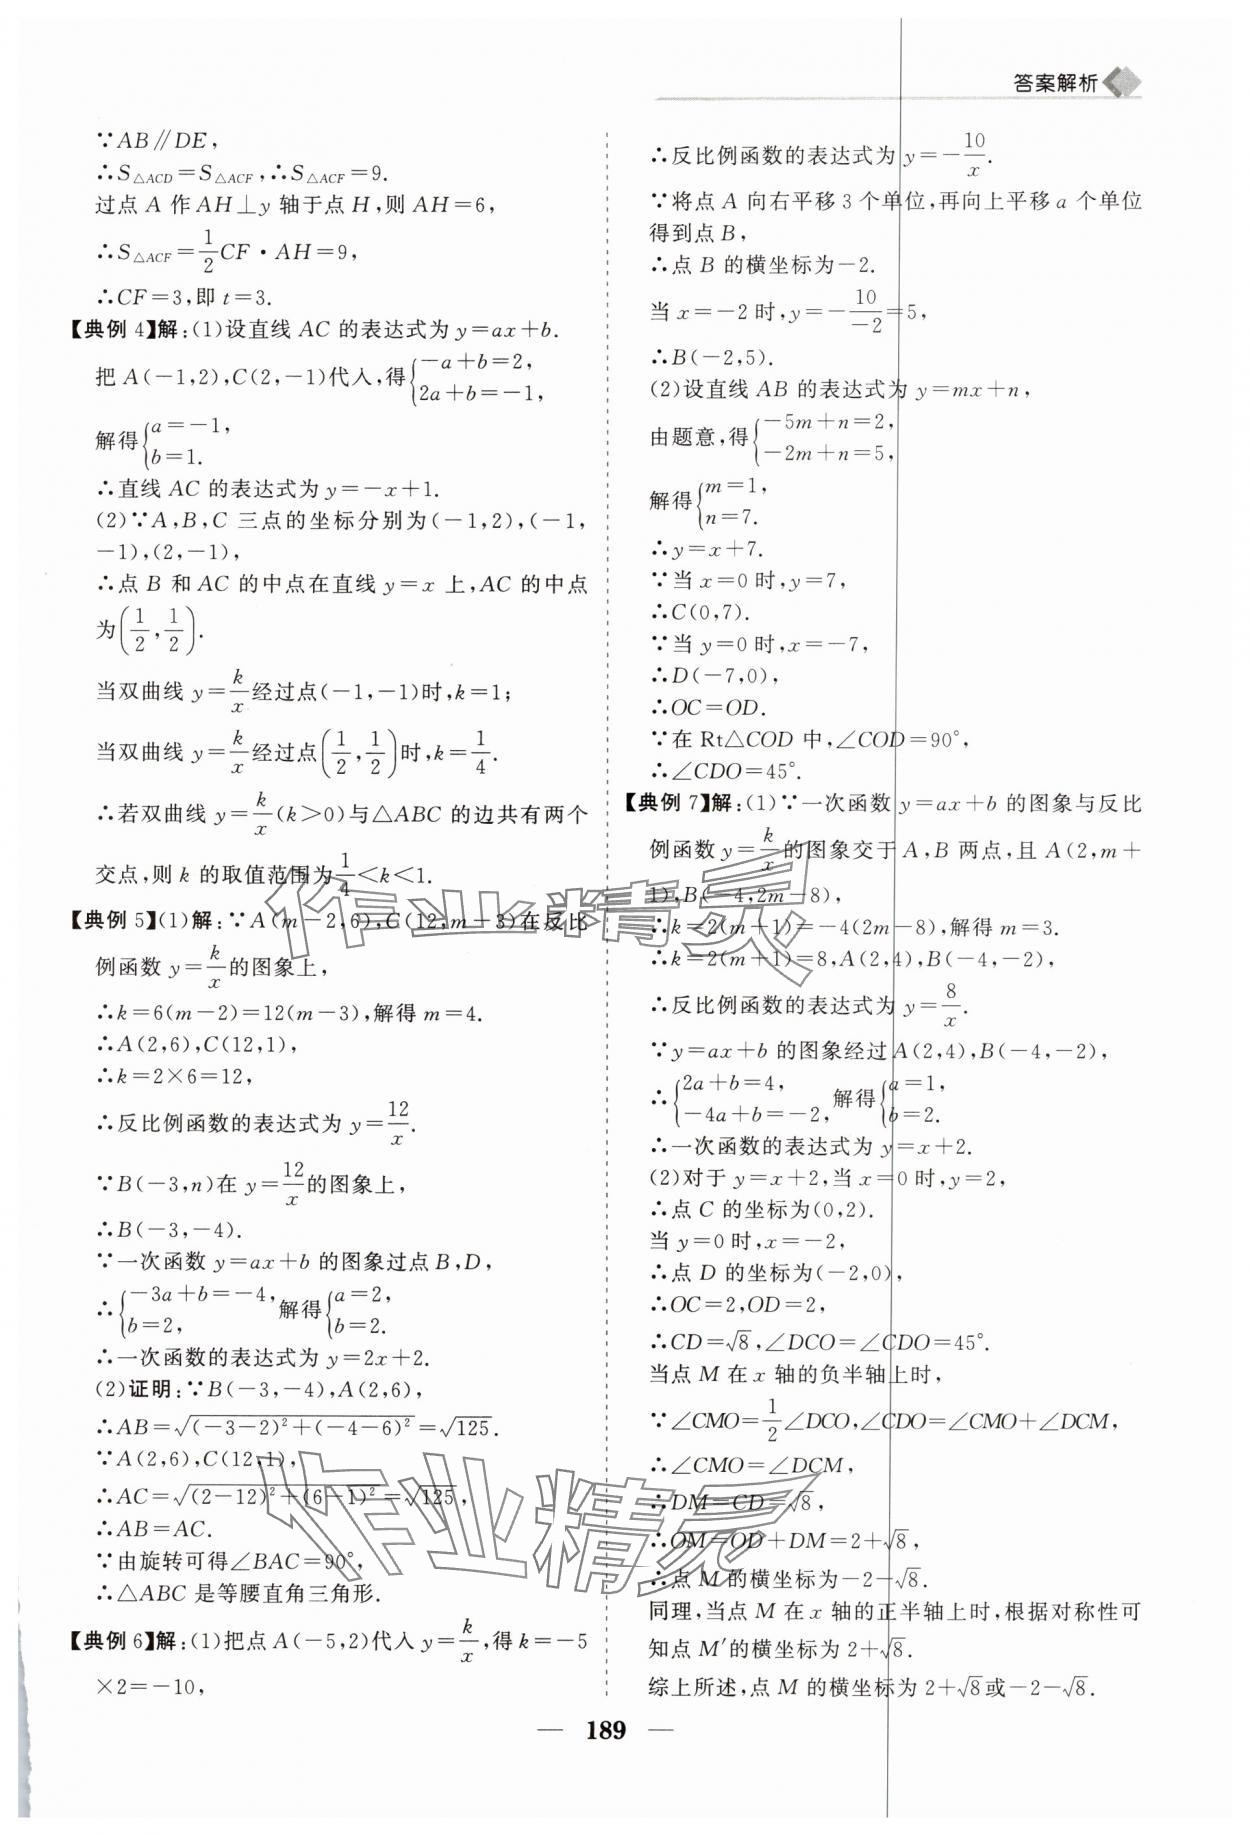 答案解析
∵AB∥DE,
∴S△ACD=S△ACF,∴S△ACF=9.
过点 A 作 AH⊥y 轴于点 H,则 AH=6,
∴S△ACF=1/2CF·AH=9,
∴CF=3,即 t=3.
【典例 4】解:(1)设直线 AC 的表达式为 y=ax+b.
把 A(-1,2),C(2,-1)代入,得{-a+b=2,
2a+b=-1,
解得{a=-1,
b=1.
∴直线 AC 的表达式为 y=-x+1.
(2)∵A,B,C 三点的坐标分别为(-1,2),(-1,
-1),(2,-1),
∴点 B 和 AC 的中点在直线 y=x 上,AC 的中点
为(1/2,1/2).
当双曲线 y=k/x经过点(-1,-1)时,k=1;
当双曲线 y=k/x经过点(1/2,1/2)时,k=1/4.
∴若双曲线 y=k/x(k>0)与△ABC 的边共有两个
交点,则 k 的取值范围为1/4<k<1.
【典例 5】(1)解:∵A(m-2,6),C(12,m-3)在反比
例函数 y=k/x的图象上,
∴k=6(m-2)=12(m-3),解得 m=4.
∴A(2,6),C(12,1),
∴k=2×6=12,
∴反比例函数的表达式为 y=12/x.
∵B(-3,n)在 y=12/x的图象上,
∴B(-3,-4).
∵一次函数 y=ax+b 的图象过点 B,D,
∴{-3a+b=-4,
b=2, 解得{a=2,
b=2.
∴一次函数的表达式为 y=2x+2.
(2)证明:∵B(-3,-4),A(2,6),
∴AB=√((-3-2)²+(-4-6)²)=√125.
∵A(2,6),C(12,1),
∴AC=√((2-12)²+(6-1)²)=√125,
∴AB=AC.
∵由旋转可得∠BAC=90°,
∴△ABC 是等腰直角三角形.
【典例 6】解:(1)把点 A(-5,2)代入 y=k/x,得 k=-5
×2=-10,
∴反比例函数的表达式为 y=-10/x.
∵将点 A 向右平移 3 个单位,再向上平移 a 个单位
得到点 B,
∴点 B 的横坐标为-2.
当 x=-2 时,y=-10/-2=5,
∴B(-2,5).
(2)设直线 AB 的表达式为 y=mx+n,
由题意,得{-5m+n=2,
-2m+n=5,
解得{m=1,
n=7.
∴y=x+7.
∵当 x=0 时,y=7,
∴C(0,7).
∵当 y=0 时,x=-7,
∴D(-7,0),
∴OC=OD.
∵在 Rt△COD 中,∠COD=90°,
∴∠CDO=45°.
【典例 7】解:(1)∵一次函数 y=ax+b 的图象与反比
例函数 y=k/x的图象交于 A,B 两点,且 A(2,m+
1),B(-4,2m-8),
∴k=2(m+1)=-4(2m-8),解得 m=3.
∴k=2(m+1)=8,A(2,4),B(-4,-2),
∴反比例函数的表达式为 y=8/x.
∵y=ax+b 的图象经过 A(2,4),B(-4,-2),
∴{2a+b=4,
-4a+b=-2, 解得{a=1,
b=2.
∴一次函数的表达式为 y=x+2.
(2)对于 y=x+2,当 x=0 时,y=2,
∴点 C 的坐标为(0,2).
当 y=0 时,x=-2,
∴点 D 的坐标为(-2,0),
∴OC=2,OD=2,
∴CD=√8,∠DCO=∠CDO=45°.
当点 M 在 x 轴的负半轴上时,
∵∠CMO=1/2∠DCO,∠CDO=∠CMO+∠DCM,
∴∠CMO=∠DCM,
∴DM=CD=√8,
∴OM=OD+DM=2+√8,
∴点 M 的横坐标为-2-√8.
同理,当点 M 在 x 轴的正半轴上时,根据对称性可
知点 M′的横坐标为 2+√8.
综上所述,点 M 的横坐标为 2+√8或-2-√8.
— 189 —
作业精灵
作业精灵